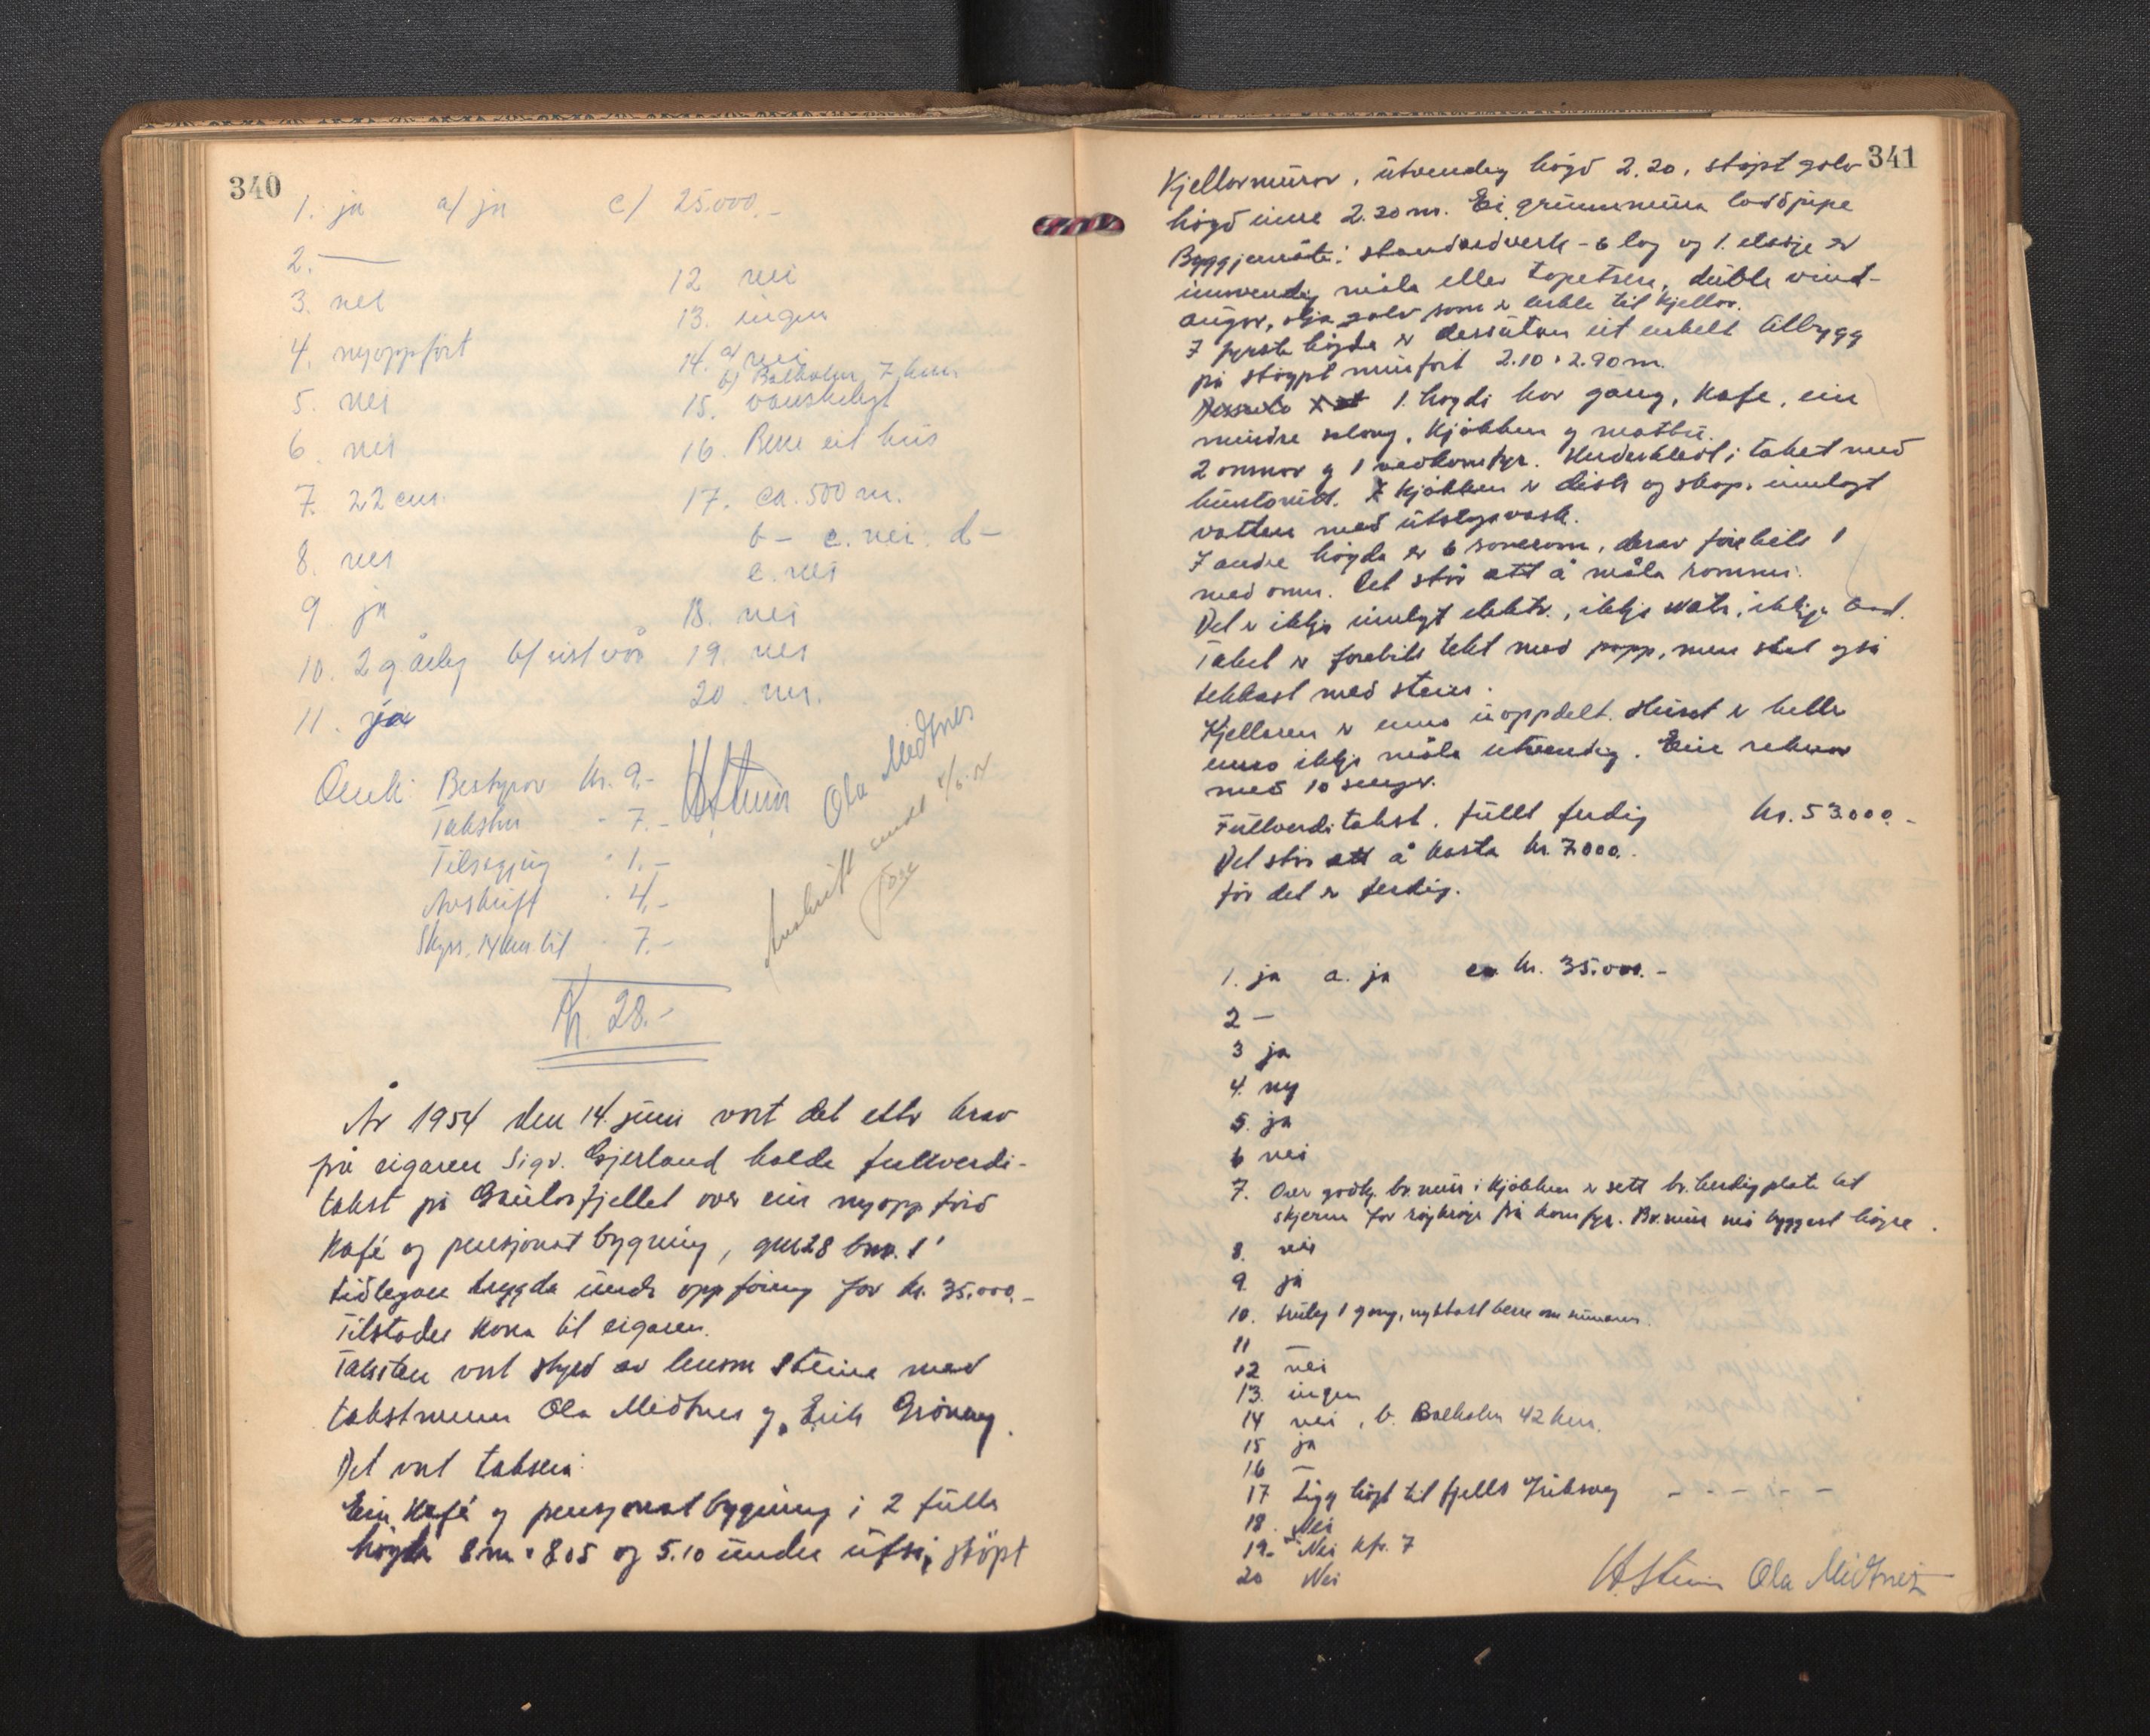 340
1. ja a/ ja c/ 25.000.-
2. —
3. nei
4. nyoppført
5. nei
6. nei
7. 22 cm.
8. nei
9. ja
10. 2 g årleg b/ sist vår
11. ja
12 nei
13. ingen
14. a/ nei
b) Balholm 7 km
15. vanskeleg
16. Berre eit hus
17. ca. 500 m.
b – c. nei. d –
e. nei
18. nei
19. nei
20. nei.
Bestyrar kr. 9.-
Takstm " 7.-
Tilseging " 1.-
Avskrift " 4.-
Skyss. 14 km. til " 7.-
Kr. 28.-
HSteine Ola Midtnes
Avskrift sendt
År 1954 den 14. juni vart det etter krav
på eigaren Sigv. Gjerland halde fullverdi-
takst på Gaularfjellet over ein nyoppførd
Kafé og pensjonat bygning, gnr 28 bnr. 1
tidlegare trygda under oppføring for kr. 35.000.-
Tilstades kona til eigaren.
Taksten vart styrd av lensm Steine med
takstmenn Ola Midtnes og Erik Grøneng.
Det vart taksera:
Ein Kafé og pensjonatbygning i 2 fulle
høgda 8 m × 8 05 og 5.10 under ufsi, støpt
341
Kjellarmurar, utvendig høgd 2.20, støpt golv
høgd inne 2.20 m. Ei grunnmura loddpipe
Byggjemåte: standardverk - 6 lag og 1. etasje er
innvendig måla eller tapetsera, duble vind-
augor, olja golv som er enkle til kjellar.
I fyrste høgda er dessutan eit enkelt tilbygg
på støypt mur fort 2.10 × 2.90 m.
1. høgdi har gang, kafe, ein
mindre salong, kjøkken og matbu.
2 omnar og 1 vedkomfyr. Huderkledt i taket med
huntonitt. I kjøkken er disk og skap, innlagt
vatten med utslagsvask.
I andre høgda er 6 soverom, derav førebils 1
med omn. Det står att å måla rommi.
Det er ikkje innlagt elektr., ikkje vatn, ikkje bad.
Taket er førebils tekt med papp, men skal også
tekkast med stein.
Kjellaren er enno uoppdelt. Huset er heller
enno ikkje måla utvendig. Ein
med 10 senger.
Fullverditakst. fullt ferdig kr. 53.000.-
Det står att å kosta kr. 7.000.
før det er ferdig.
1. ja a. ja kr. 35.000.-
2 –
3 ja
4. ny
5. ja
6 nei
7. Over godkj. br. mur i kjøkken er sett br. herdig plate til
skjerm for frå komfyr. Br. mur må byggast høgre.
8. nei
9 ja
10. truleg 1 gong, nyttast berre om sumaren.
11 –
12 nei
13. ingen
14 nei, b. Balholm 42 km.
15 ja
16 –
17 Ligg høgt til fjells – – – – –
18. Nei
19. Nei kfr. 7
20 Nei
HSteine Ola Midtnes